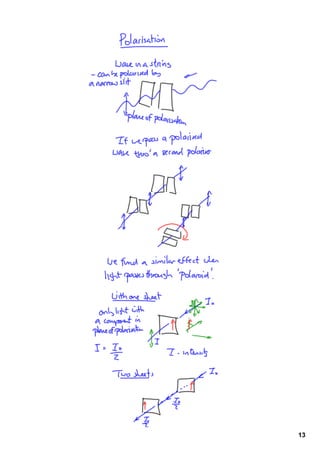 Polarisation
Wave in a string
- can be polarised by
a narrow slit
plane of polarisation
If we pass a polarised
wave thro' a second polariser
We find a similar effect when
light passes through 'polaroid'.
With one sheet
only light with
a component in
plane of polarisation
I₀
I
I = I₀/2
I - intensity
Two sheets
I₀
I₀/2
I₀/2
13